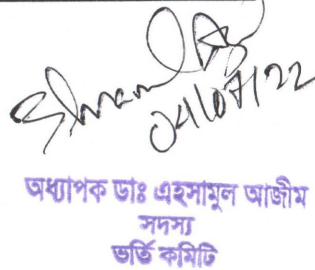 04/07/22
অধ্যাপক ডাঃ এহসামুল আজীম
সদস্য
ভর্তি কমিটি